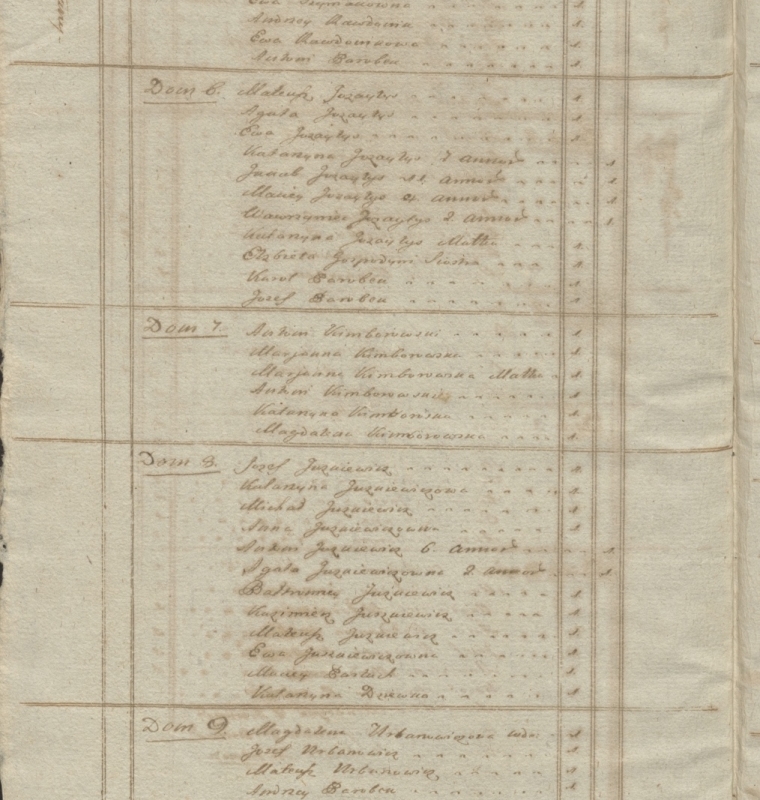 Ewa Szymakowna 1.
Andrzey Rawdonia 1.
Ewa Rawdoniowa 1.
Antoni Parobek 1.
Dom 6. Mateusz Juzaytys 1.
Agata Juzaytys 1.
Ewa Juzaytys 1.
Katarzyna Juzaytys 7 annor 1.
Jakub Juzaytys annor 1.
Maciey Juzaytys 4. annor 1.
Wawrzyniec Juzaytys 2. annor 1.
Katarzyna Juzaytys Matka 1.
Elzbieta Gospodyni Siostra 1.
Karol Parobek 1.
Jozef Parobek 1.
Dom 7. Antoni Kimborowski 1.
Maryanna Kimborowska 1.
Maryanna Kimborowska Matka 1.
Antoni Kimborowski 1.
Katarzyna 1.
Magdalena Kimborowska 1.
Dom 8. Jozef Juzaiewicz 1.
Katarzyna Juzaiewiczowa 1.
Michał Juzaiewicz 1.
Anna Juzaiewiczowna 1.
Antoni Juzaiewicz 6. annor 1.
Agata Juzaiewiczowna 2. annor 1.
Bałtromiey Juzaiewicz 1.
Kazimierz Juszaiewicz 1.
Mateusz Juzaiewicz 1.
Ewa Juszaiewiczowna 1.
Maciey 1.
Katarzyna Dziewka 1.
Dom 9. Magdalena Urbanowiczowa wdo: 1.
Jozef Urbanowicz 1.
Mateusz Urbanowicz 1.
Andrzey Parobek 1.